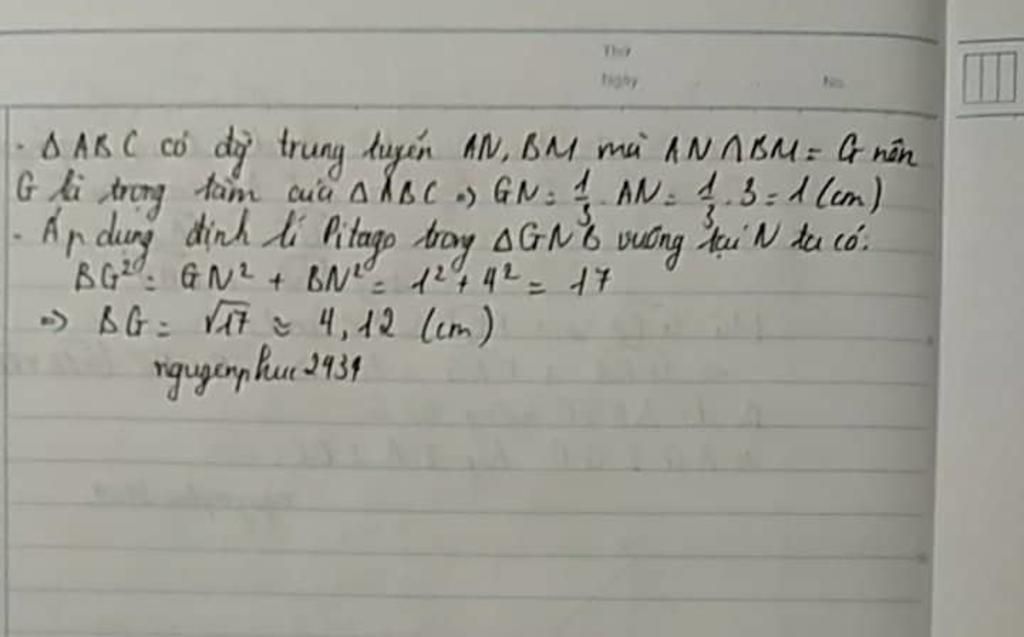 Thứ
Ngày No
- Δ ABC có đg trung tuyến AN, BM mà AN ∩ BM = G nên
G là trọng tâm của Δ ABC ⇒ GN = 1/3 . AN = 1/3 . 3 = 1 (cm)
- Áp dụng định lí Pitago trong Δ GNB vuông tại N ta có:
BG² = GN² + BN² = 1² + 4² = 17
⇒ BG = √17 ≈ 4,12 (cm)
nguyenphuc2934